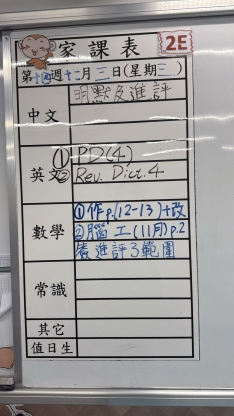 家課表
2E
第十四週十二月三日(星期三)
中文
默及進評
英文
① PD(4)
② Rev. Dict. 4
數學
①作p.(12-13)+改
②腦工(11月)p.2
養進評3範圍
常識
其它
值日生